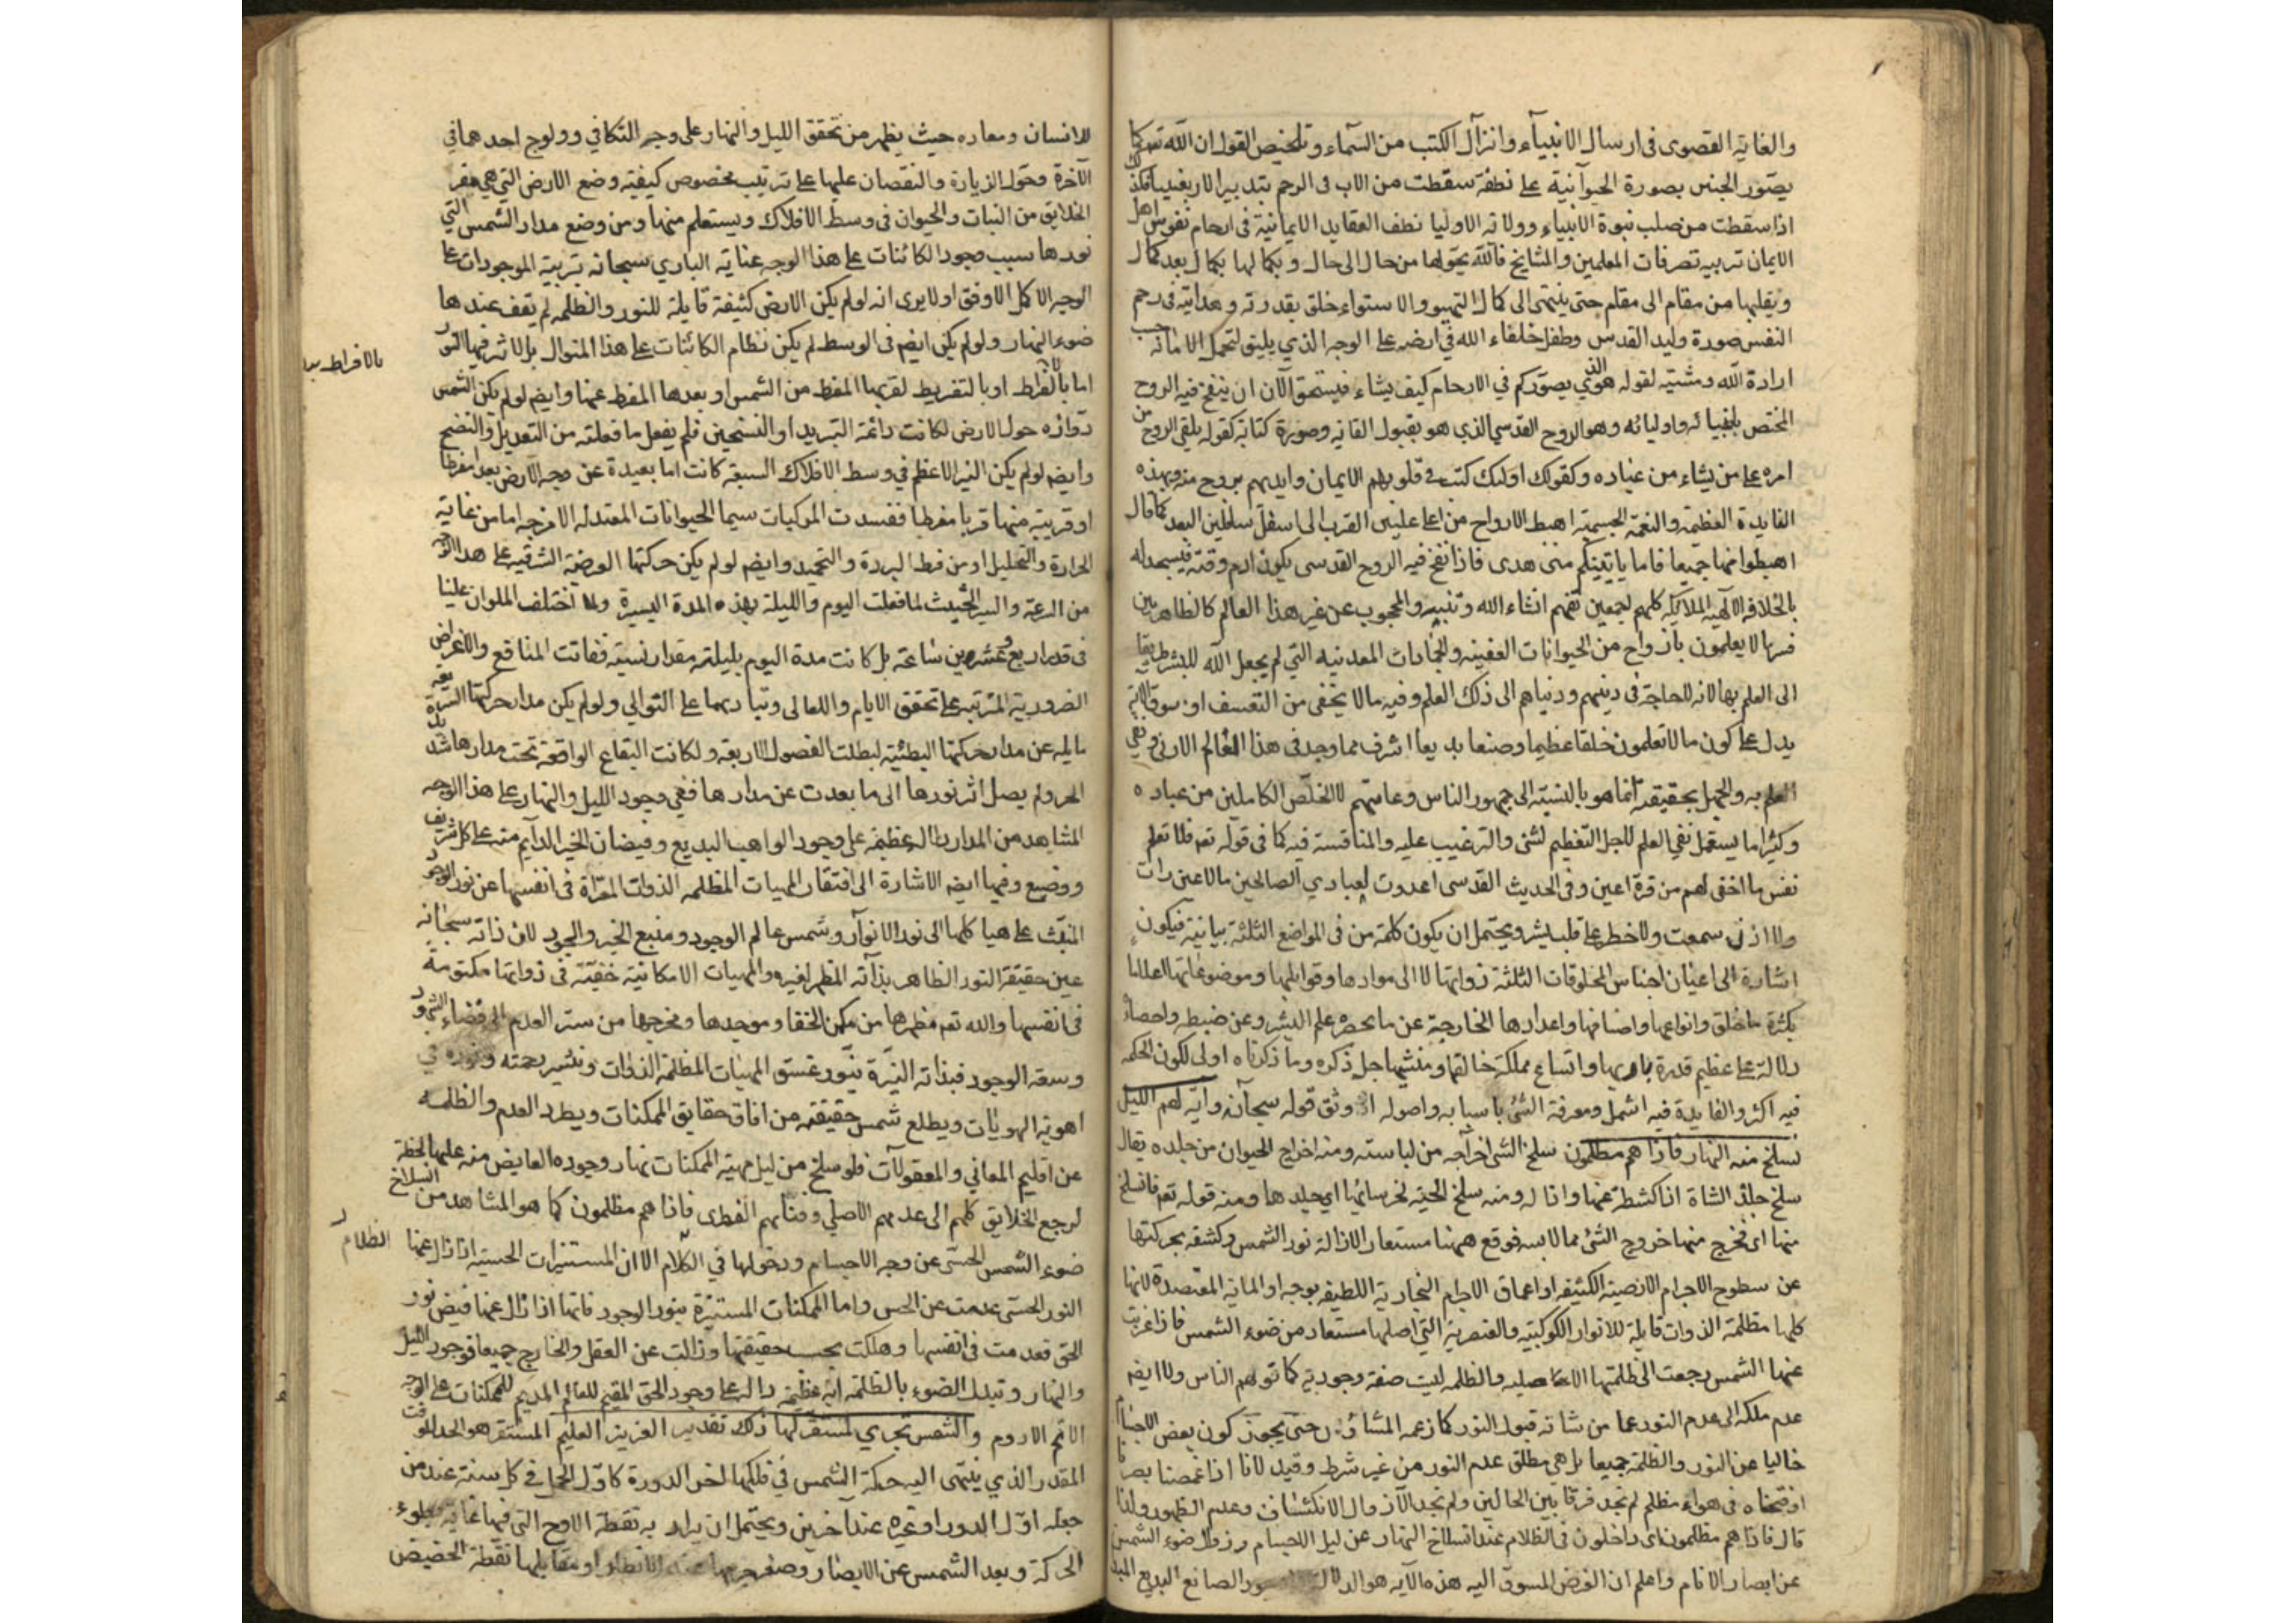 والغاية القصوى فى ارسال الانبياء وانزال الكتب من السماء وتلخيص القول ان الله تعه كما
يصور الجنس بصورة الحيوانية على نطفة سقطت من الاب فى الرحم بتدبير الاربعينيا فكذلك
اذا سقطت من صلب نبوة الانبياء وولاته الاوليا نطف العقايد الايمانية فى ارحام نفوس اهل
الايمان تربيه تصرفات المعلمين والمشايخ فالله يحولها من حال الى حال وبكمالها بكمال بعد كمال
ويقلبها من مقام الى مقام حتى ينتهى الى كمال التهيو والاستواء خلق بقدرته وهدايته فى رحم
النفس صورة وليد القدس وطفل خلفاء الله فى ارضه على الوجه الذي يليق لتحمل الامانه حسب
ارادة الله ومشيته لقوله هو الذي يصوركم في الارحام كيف يشاء فيستحق الآن ان ينفخ فيه الروح
المختص بانبيائه واوليائه وهو الروح القدسي الذي هو بقبول القانه وصورة كتابة كقوله يلقى الروح من
امره على من يشاء من عباده وكقوله اولئك كتب فى قلوبهم الايمان وايدهم بروح منه وبهذه
الفايدة العظيمة والنعمة الجسيمة اهبط الارواح من اعلى عليين القرب الى اسفل سافلين البعد كما قال
اهبطوا منها جميعا فاما ياتينكم منى هدى فاذا نفخ فيه الروح القدسى يكون ادم وقته فيسجد له
بالخلافة الالهية الملائكة كلهم اجمعين تفهم انشاء الله وتنبه والمحجوب عن غير هذا العالم كالظاهريين
فسرها لا يعلمون بازواج من الحيوانات العفينه والجمادات المعدنية التي لم يجعل الله للبشر طريقا
الى العلم بها لانه لا حاجة فى دينهم ودنياهم الى ذلك العلم وفيه ما لا يخفى من التعسف اذ سوق الآية
يدل على كون ما لا تعلمون خلقا عظيما وصنعا بديعا اشرف مما وجد فى هذا العالم الادنى ونفي
العلم به والجهل بحقيقته انما هو بالنسبة الى جمهور الناس وعامتهم لا الخلّص الكاملين من عباده
وكثيرا ما يستعمل نفي العلم لاجل التعظيم لشئ والترغيب عليه والمنافسة فيه كما فى قوله تعه فلا تعلم
نفس ما اخفى لهم من قرة اعين وفى الحديث القدسى اعددت لعبادي الصالحين ما لا عين رات
ولا اذن سمعت ولا خطر على قلب بشر ويحتمل ان يكون كلمة من فى المواضع الثلثة بيانية فيكون
اشارة الى اعيان اجناس المخلوقات الثلثة ذواتها لا الى موادها وقوابلها وموضوعاتها
بكثرة ما خلق وانواعها واصنافها واعدادها الخارجة عن ما يحصره علم البشر وعن ضبطه واحصاء
دلالة على عظيم قدرة باريها واتساع مملكة خالقها ومنشيها جل ذكره وما ذكرناه اولى لكون الحكمة
فيه اكثر والفايدة فيه اشمل ومعرفة الشئ باسبابه واصوله اوثق قوله سبحانه وآية لهم الليل
نسلخ منه النهار فاذا هم مظلمون سلخ الشئ اخراجه من لباسته ومنه اخراج الحيوان من جلده يقال
سلخ جلد الشاة اذا كشطه عنها وازاله ومنه سلخ الحية لخرسائها اي جلدها ومنه قوله تعه فانسلخ
منها اى فخرج منها خروج الشئ مما لابسه فوقع ههنا مستعار الازالة نور الشمس وكشفه بحركتها
عن سطوح الاجرام الارضية الكثيفة او اعماق الاجرام البخارية اللطيفة بوجه او المائية المقتصدة لانها
كلها مظلمة الذوات قابلة للانوار الكوكبية والعنصرية التي اصلها مستعار من ضوء الشمس فاذا غربت
عنها الشمس رجعت الى ظلمتها الاصليه والظلمه ليست صفة وجودية كما توهم الناس ولا ايضه
عدم ملكه الى عدم النور عما من شانه قبول النور كما زعمه المشاؤن حتى يجوز كون بعض الاجسام
خاليا عن النور والظلمة جميعا بل هي مطلق عدم النور من غير شرط وقيد لانا اذا غمضنا بصرنا
او فتحناه فى هواء مظلم لم نجد فرقا بين الحالين ولم نجد الآن مال الانكشاف وعدم الظهور ولذا
قال فاذا هم مظلمون اى داخلون فى الظلام عند انسلاخ النهار عن ليل الاجسام وزوال ضوء الشمس
عن ابصار الانام واعلم ان الغرض المسوق اليه هذه الآيه هو الدلالة الصانع البديع
للانسان ومعاده حيث يظهر من تحقق الليل والنهار على وجه التكافي وولوج احدهما في
الآخرة وتحول الزيادة والنقصان عليها على ترتيب مخصوص كيفية وضع الارض التي هي مقر
الخلايق من النبات والحيوان فى وسط الافلاك ويستعلم منها ومن وضع مدار الشمس التي
نورها سبب وجود الكائنات على هذا الوجه عناية الباري سبحانه بتربية الموجودات على
الوجه الاكمل الاوفق اولا يرى انه لو لم يكن الارض كثيفة قابلة للنور والظلمه لم يقف عندها
ضوء النهار ولو لم يكن ايضه فى الوسط لم يكن نظام الكائنات على هذا المنوال بل لاثر فيها النور
بالافراط
اما بالافراط او بالتفريط لقربها المفرط من الشمس او بعدها المفرط عنها وايضه لو لم يكن الشمس
دوارة حول الارض لكانت دائمة التبريد او التسخين فلم يفعل ما فعلته من التعديل والنضج
وايضه لو لم يكن النير الاعظم في وسط الافلاك السبعة كانت اما بعيدة عن وجه الارض بعدا مفرطا
او قريبة منها قربا مفرطا ففسدت المركبات سيما الحيوانات المعتدله الامزجه اما من غاية
الحرارة والتحليل او من فرط البردة والتجميد وايضه لو لم يكن حركتها العرضية الشرقيه على هذا الوجه
من السرعة والسير الحثيث لما فعلت اليوم والليلة بهذه المدة اليسيرة ولا اختلف الملوان علينا
فى قدر اربع وعشرين ساعة بل كانت مدة اليوم بليلته مقدار نسيئه ففاتت المنافع والاغراض
الضرورية المترتبة على تحقق الايام والليالى وتباديهما على التوالي ولو لم يكن مدار حركتها السريعة
مايله عن مدار حركتها البطيئة لبطلت الفصول الاربعة ولكانت البقاع الواقعة تحت مدارها شديد
الحر ولم يصل اثر نورها الى ما بعدت عن مدارها ففي وجود الليل والنهار على هذا الوجه
المشاهد من المدار العظيمة على وجود الواهب البديع وفيضان الخير الدايم منه على كل شريف
ووضيع وفيها ايضه الاشارة الى افتقار المهيات المظلمه الذوات المعراة فى انفسها عن نور الوجود
المنبث على هياكلها الى نور الانوار وشمس عالم الوجود ومنبع الخير والجود لان ذاته سبحانه
عين حقيقة النور الظاهر بذاته المظهر لغيره والمهيات الامكانية خفية فى ذواتها مكتومة
فى انفسها والله تعه مظهرها من مكمن الخفا وموجدها ومخرجها من ستر العدم الى فضاء الشهود
وسعة الوجود فبذاته النيرة ينور غسق المهيات المظلمة الذوات وينشر رحمته ونوره في
اهوية الهويات ويطلع شمس حقيقته من افاق حقايق الممكنات ويطرد العدم والظلمه
عن اقليم المعاني والمعقولات فلو سلخ من ليل مهية الممكنات نهار وجوده الفايض منه عليها لحظة
لرجع الخلايق كلهم الى عدمهم الاصلي وفنائهم الفطرى فاذا هم مظلمون كما هو المشاهد من انسلاخ
ضوء الشمس الحسى عن وجه الاجسام ودخولها في الكلام الا ان المستنيرات الحسية اذا زال عنها
الظلام
النور الحسى عدمت عن الحس واما الممكنات المستنيرة بنور الوجود فانها اذا زال عنها فيض نور
الحق فعدمت فى انفسها وهلكت بحسب حقيقتها وزالت عن العقل والخارج جميعا فوجود الليل
والنهار وتبدل الضوء بالظلمة آية عظيمة دالة على وجود الحق المقيم للعالم المديم للممكنات على الوجه
الاتم الادوم والشمس تجري لمستقر لها ذلك تقدير العزيز العليم المستقر هو الحد الموقت
المقدر الذي ينتهى اليه حركة الشمس في فلكها لخر الدورة كاول الحمل في كل سنة عند من
جعله اول الدور او غيره عند آخرين ويحتمل ان يراد به نقطة الاوج التي فيها غاية بطوء
الحركة وبعد الشمس عن الابصار وصغر جرمها عند الانظار او مقابلها نقطة الحضيض